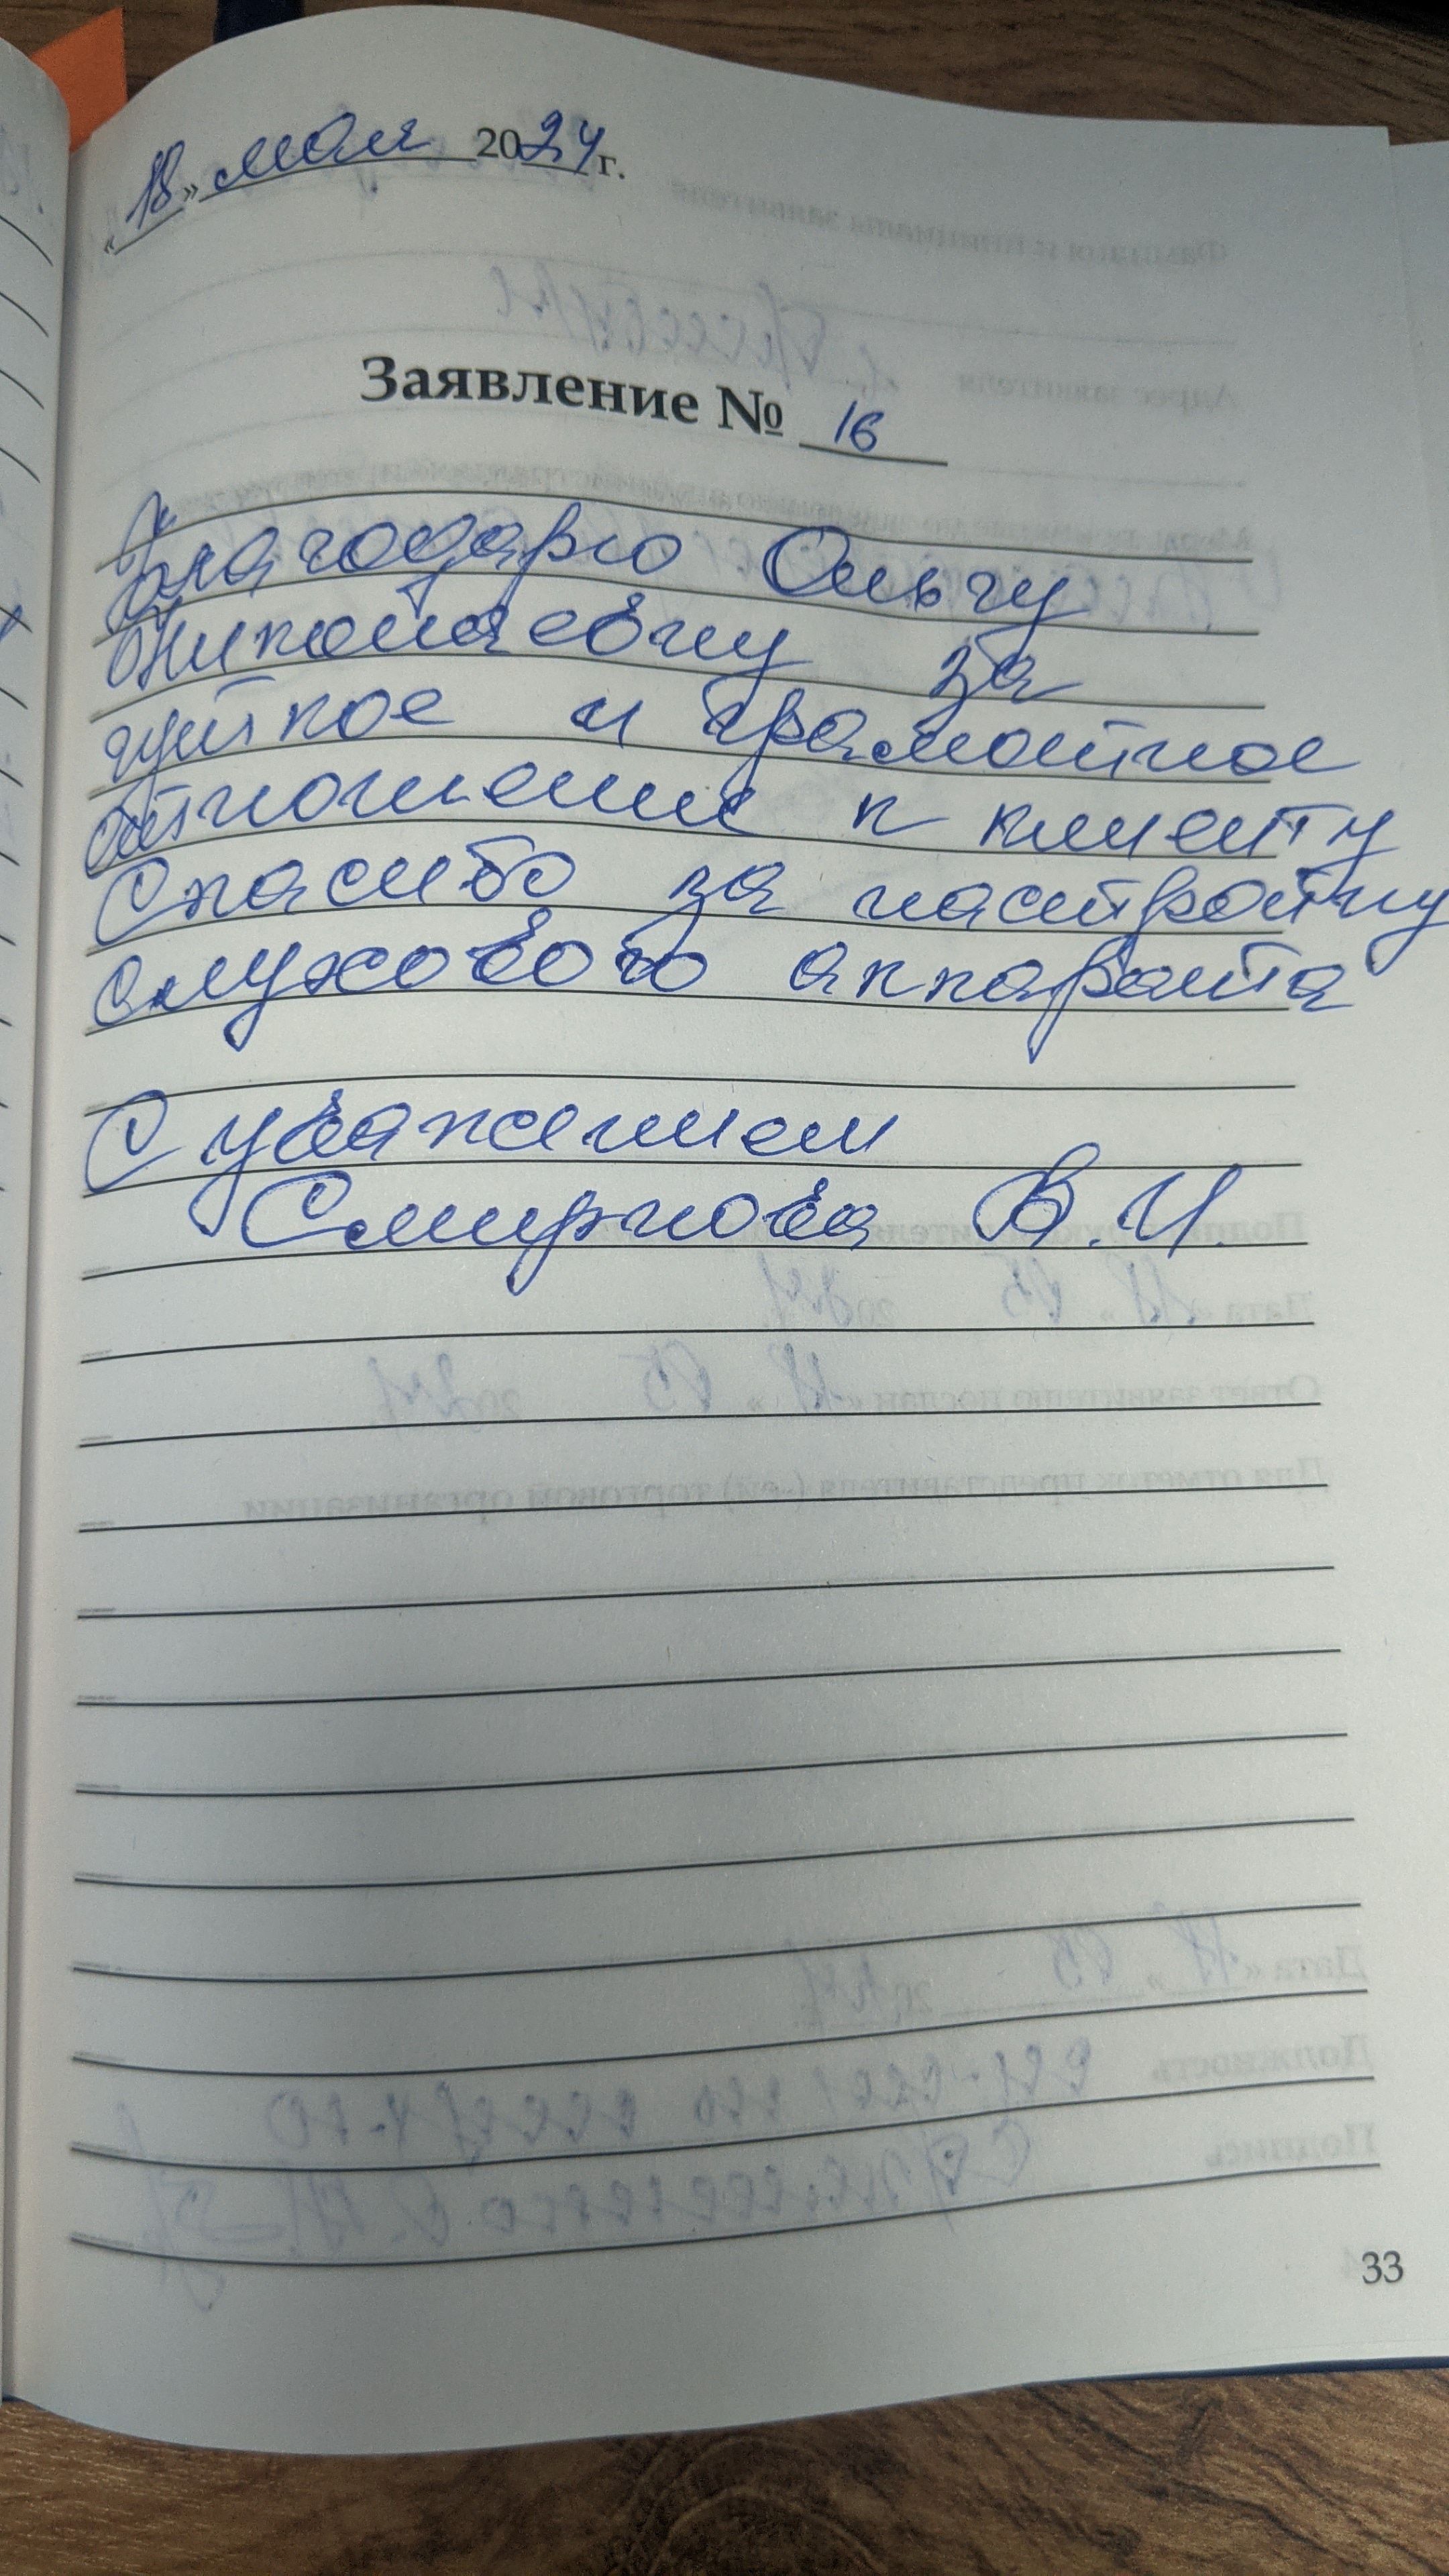 «18» мая 2024 г.
Заявление № 16
Благодарю Ольгу
Николаевну за
чуткое и грамотное
отношение к клиенту
Спасибо за настройку
слухового аппарата
С уважением
Смирнова В.И.
33